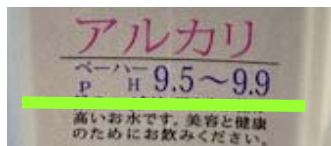 アルカリ
ペーハー
PH 9.5～9.9
高いお水です。美容と健康
のためにお飲みください。